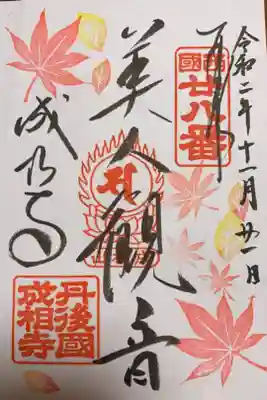 令和二年十一月廿一日
奉拝
西國
廿八番
美人観音
成相寺
丹後國
成相寺